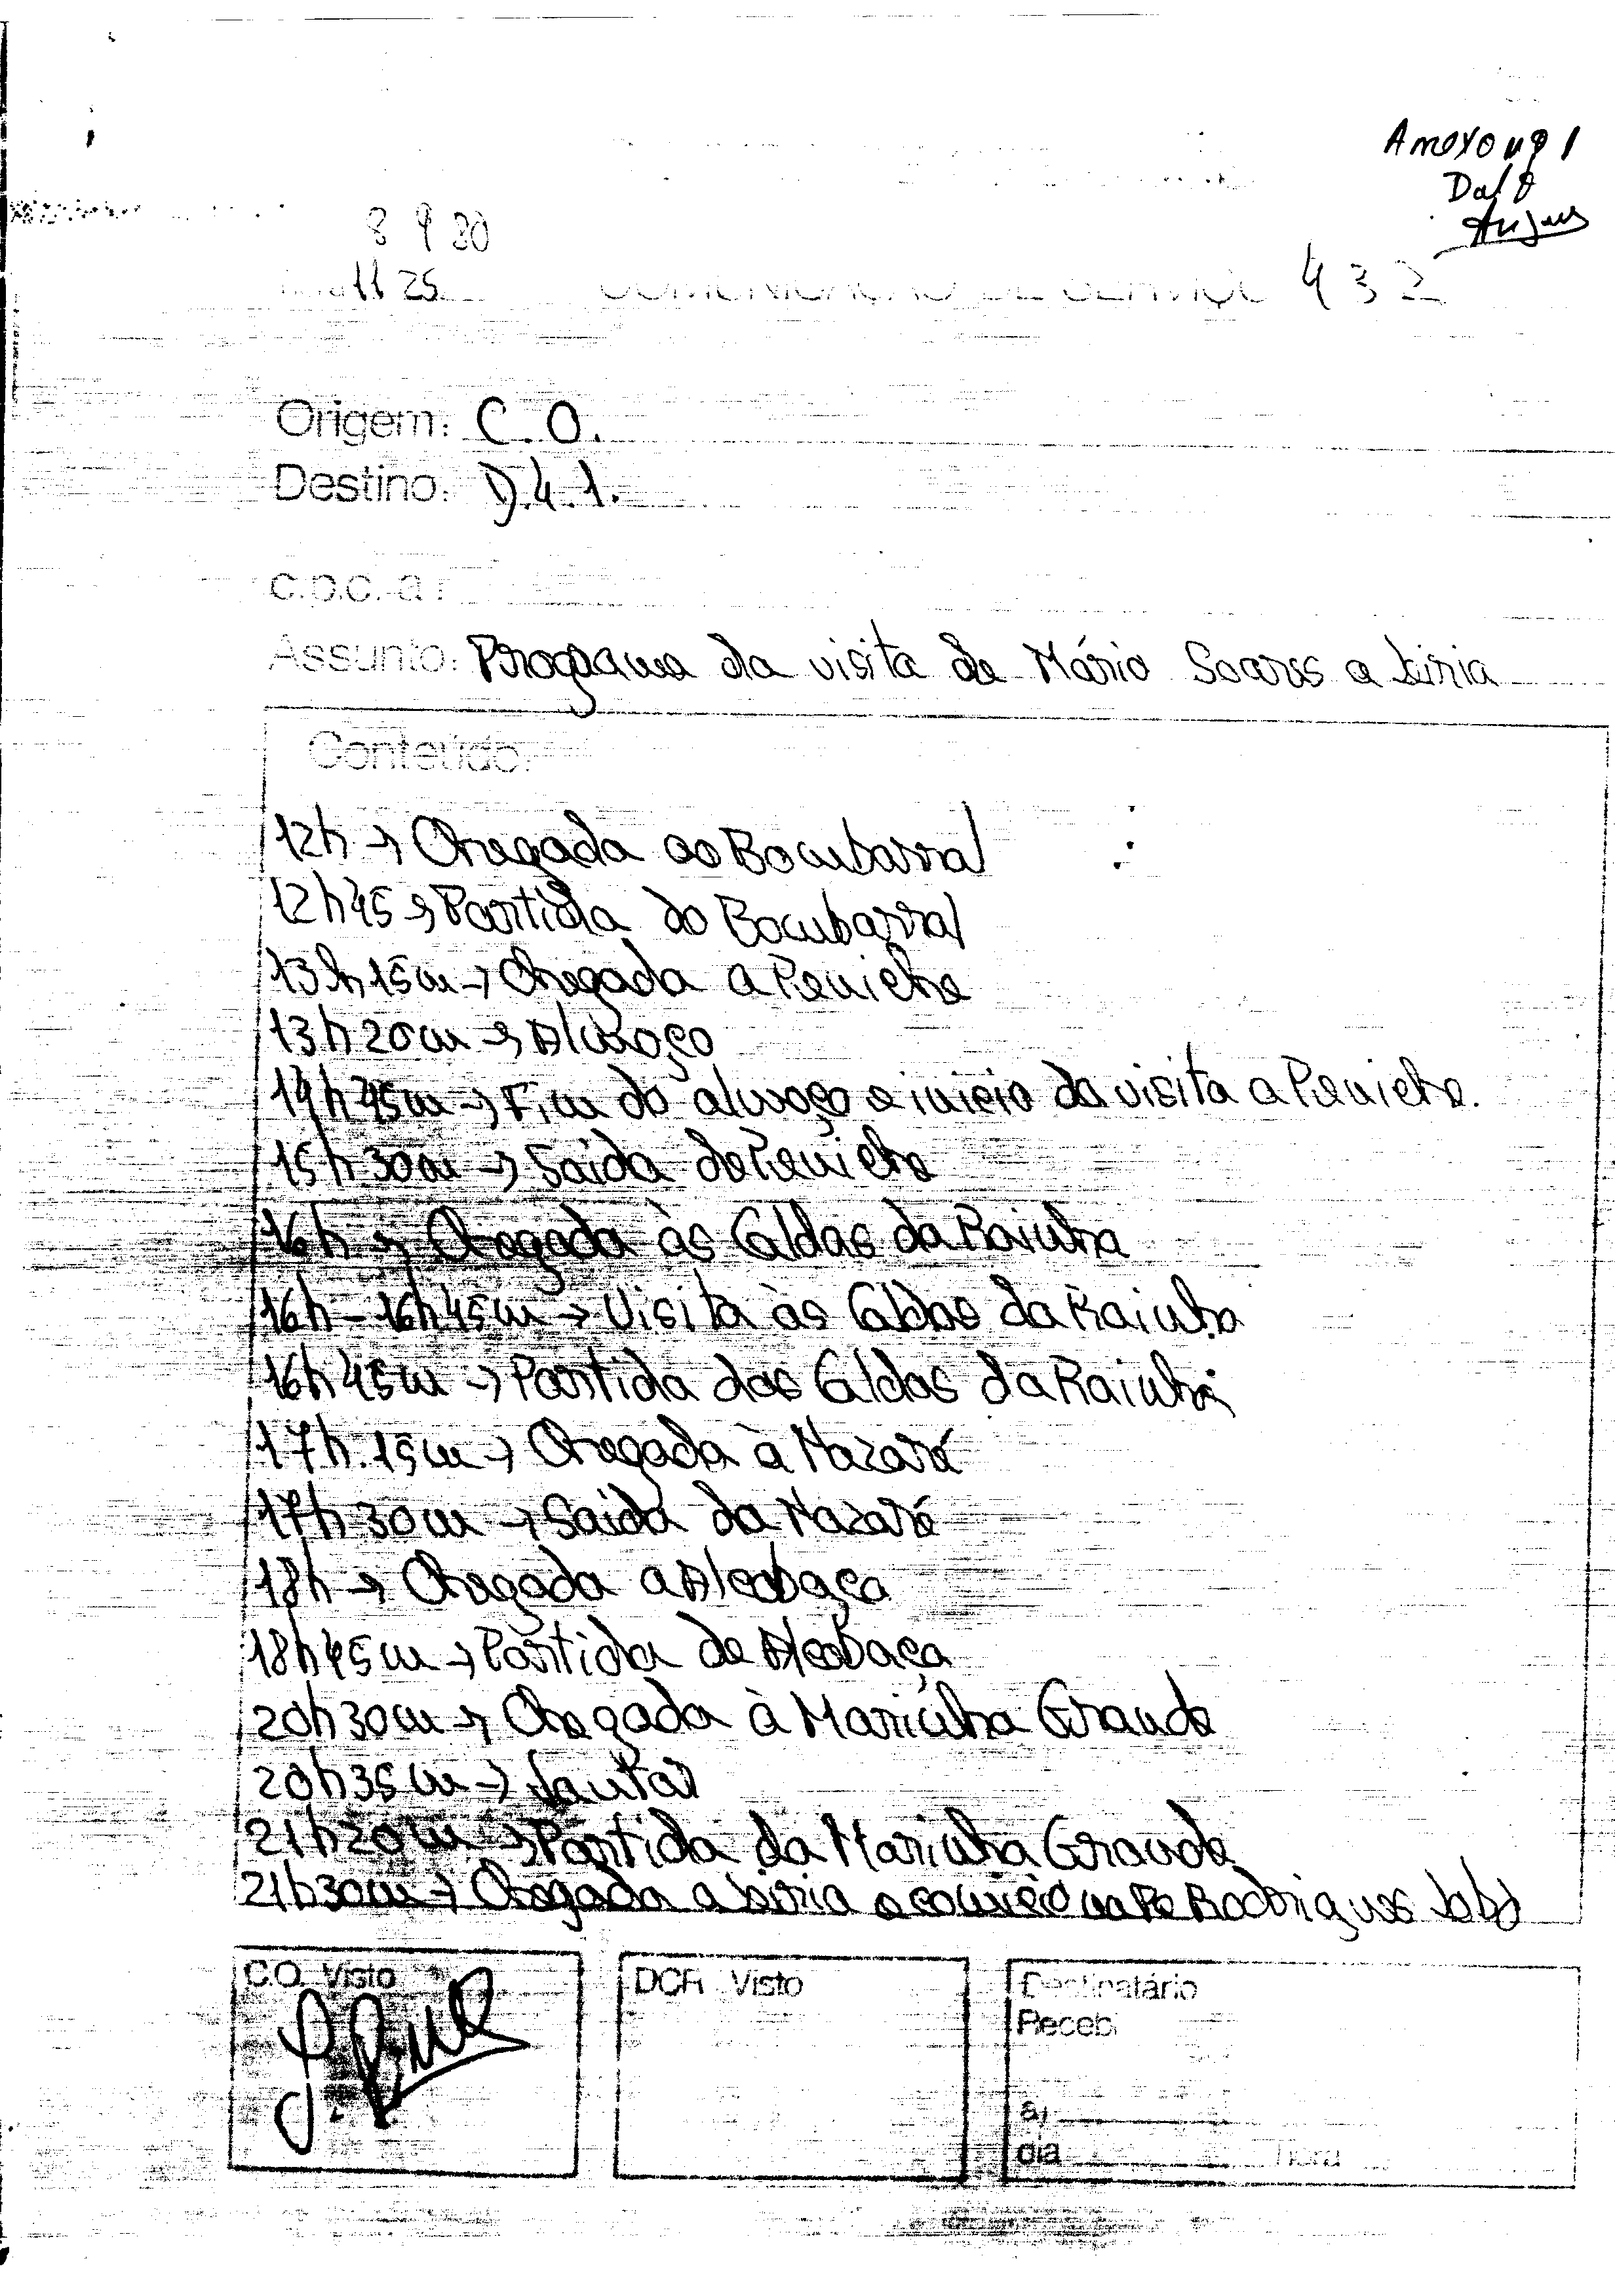 Anexo nº 1
8 9 80
11 25
COMUNICAÇÃO DE SERVIÇO 432
Origem: C.O.
Destino: D.4.1.
c.p.c. a:
Assunto: Programa da visita de Mário Soares a Leiria
Conteúdo:
12h → Chegada ao Bombarral
12h45 → Partida do Bombarral
13h15m → Chegada a Peniche
13h20m → Almoço
14h45m → Fim do almoço e inicio da visita a Peniche.
15h30m → Saida de Peniche
16h → Chegada às Caldas da Rainha
16h - 16h45m → Visita às Caldas da Rainha
16h45m → Partida das Caldas da Rainha
17h.15m → Chegada à Nazaré
17h30m → Saida da Nazaré
18h → Chegada a Alcobaça
18h45m → Partida de Alcobaça
20h30m → Chegada à Marinha Grande
20h35m → Jantar
21h20m → Partida da Marinha Grande
21h30m → Chegada a Leiria e comicio na Rodrigues Lobo
C.O. Visto
DCR Visto
Destinatário
Recebi
a)
dia hora